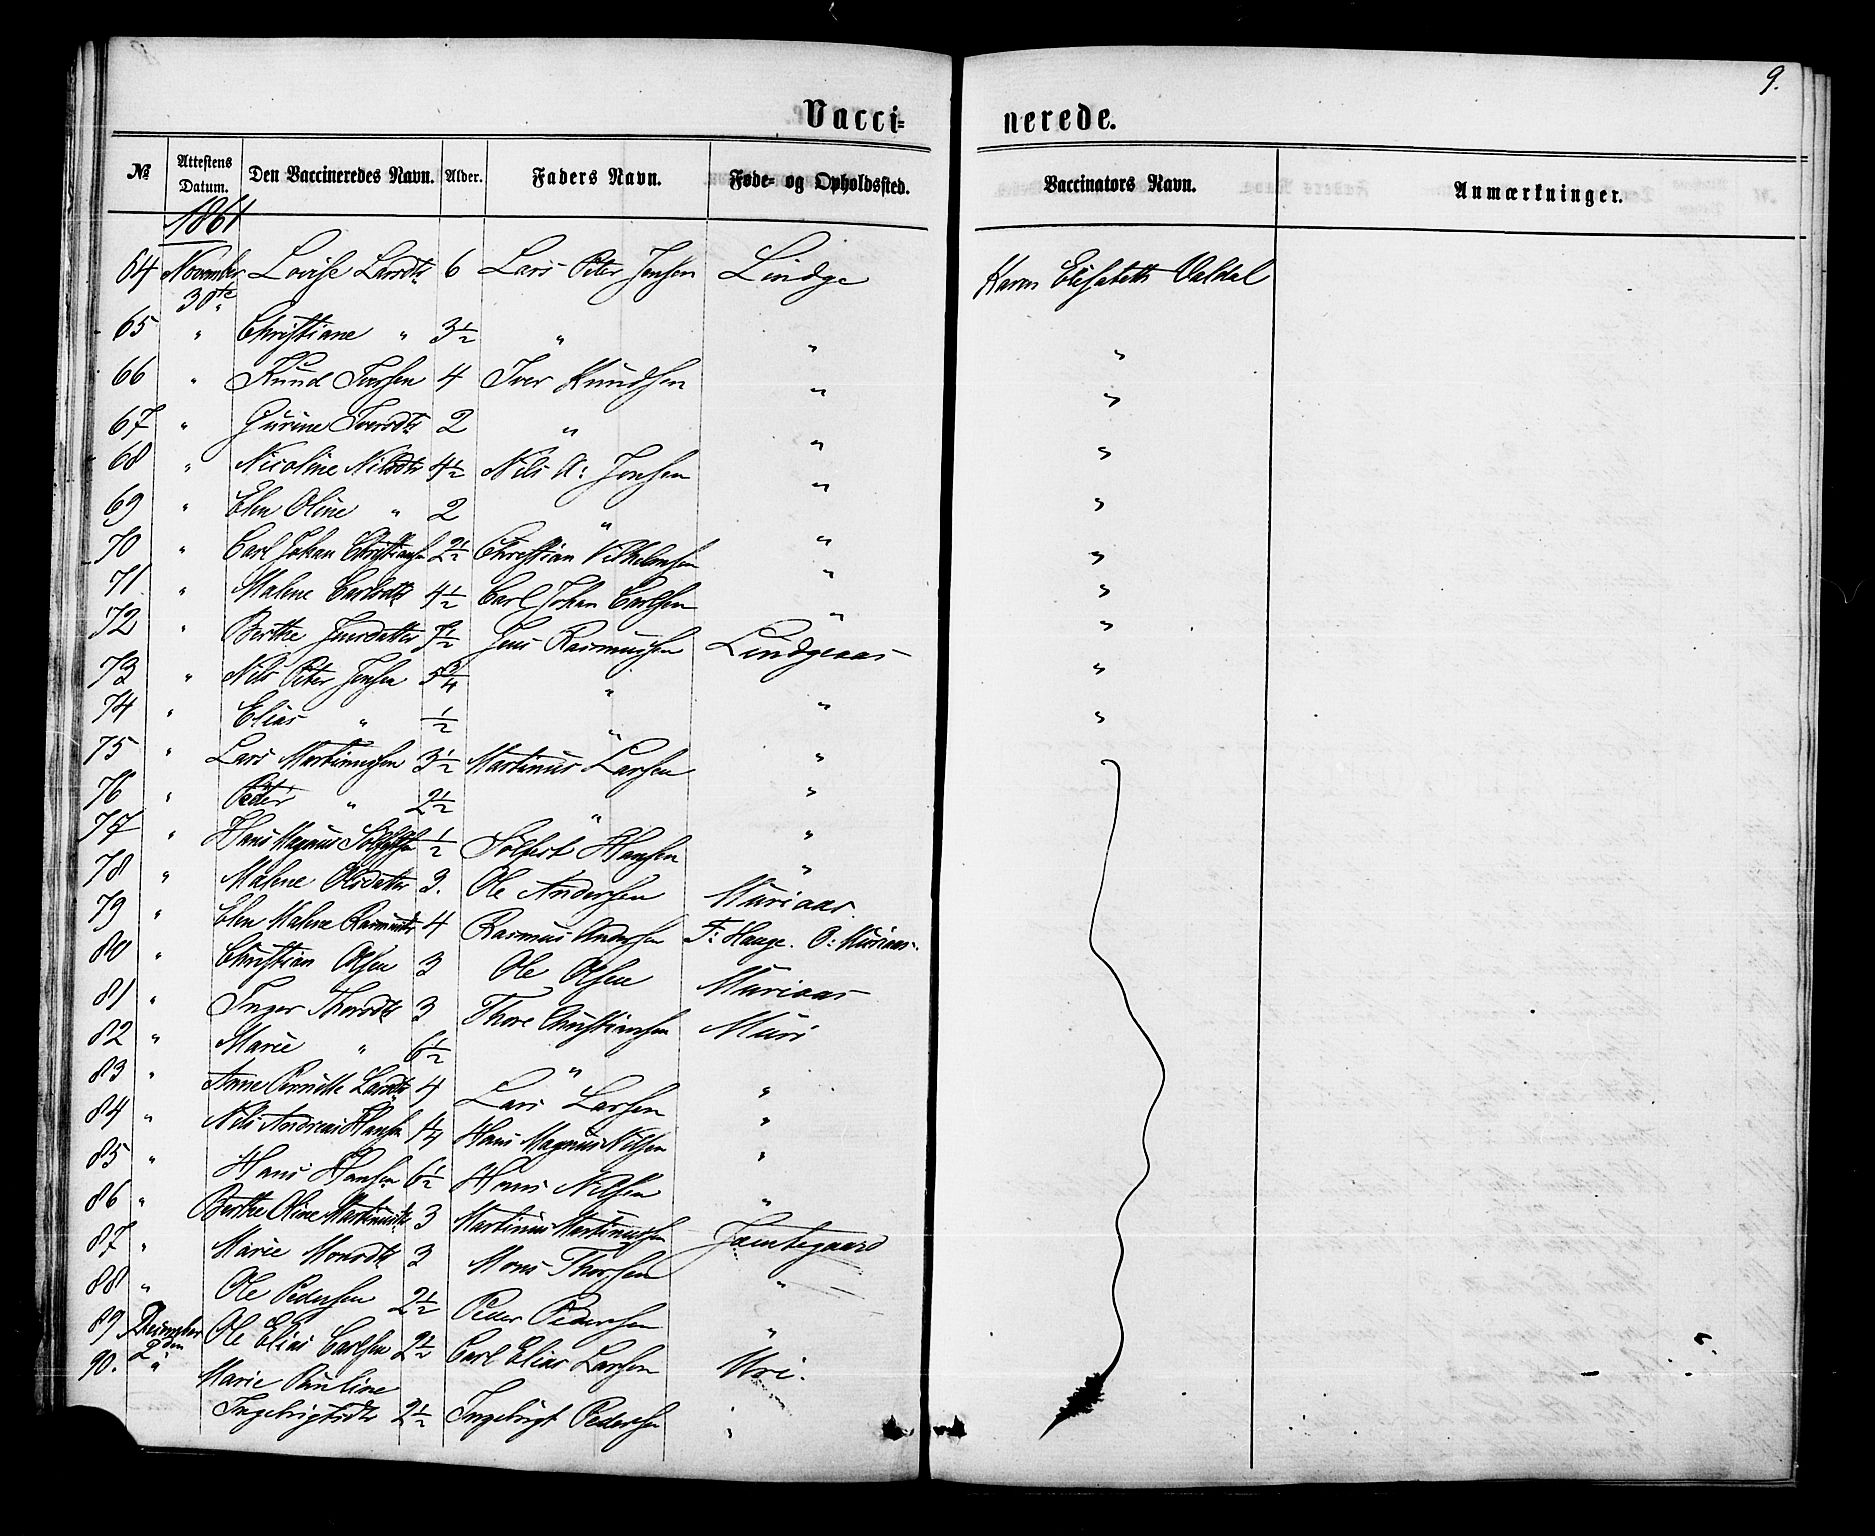 9.
Vacci= nerede.
No Attestens Datum. Den Vaccineredes Navn. Alder. Faders Navn. Føde= og Opholdssted. Vaccinators Navn. Anmærkninger.
1861
64 November 30te Lovise Larsdtr 6 Lars Peter Jensen Lindge Karen Elisabeth Valdal
65 " Christiane " 3 1/2 " " "
66 " Knud Iversen 4 Iver Knudsen " "
67 " Gurine Iversdtr 2 " " "
68 " Nicoline Nilsdtr 4 1/2 Nils A: Jensen " "
69 " Elen Oline " 2 " " "
70 " Carl Johan Christiansen 2 1/2 Christian Vilhelmsen " "
71 " Malene Carlsdtr 4 1/2 Carl Johan Carlsen " "
72 " Berthe Jensdatter 7 1/2 Jens Rasmussen Lindgeaas "
73 " Nils Peter Jensen 5 3/4 " " "
74 " Elias " 1/2 " "
75 " Lars Martinussen 3 1/2 Martinus Larsen "
76 " Peder " 2 1/2 " "
77 " Hans Magnus 1/2 Hansen "
78 " Malene Olsdatter 3. Ole Andersen Muriaas
79 " Elen Malene Rasmusdtr 4 Rasmus Andersen F: Hauge. O: Muriaas.
80 " Christian Olsen 3 Ole Olsen Muriaas
81 " Inger Thoresdtr 3 Thore Christiansen Muri
82 " Marie " 6 1/2 " "
83 " Anne Pernille Larsdtr 4 Lars Larsen "
84 " Nils Andreas Hansen 1/4 Hans Magnus Nilsen "
85 " Hans Hansen 6 1/2 Hans Nilsen "
86 " Berthe Oline Martinusdtr 3 Martinus Martinussen Jamtegaard
87 " Marie Monsdtr 3 Mons Thorsen "
88 " Ole Pedersen 2 1/2 Peder Pedersen "
89 December 2den Ole Elias Carlsen 2 1/2 Carl Elias Larsen Uri.
90. " Marie Pauline
Ingebrigtsdtr 2 1/2 Ingebrigt Pedersen "